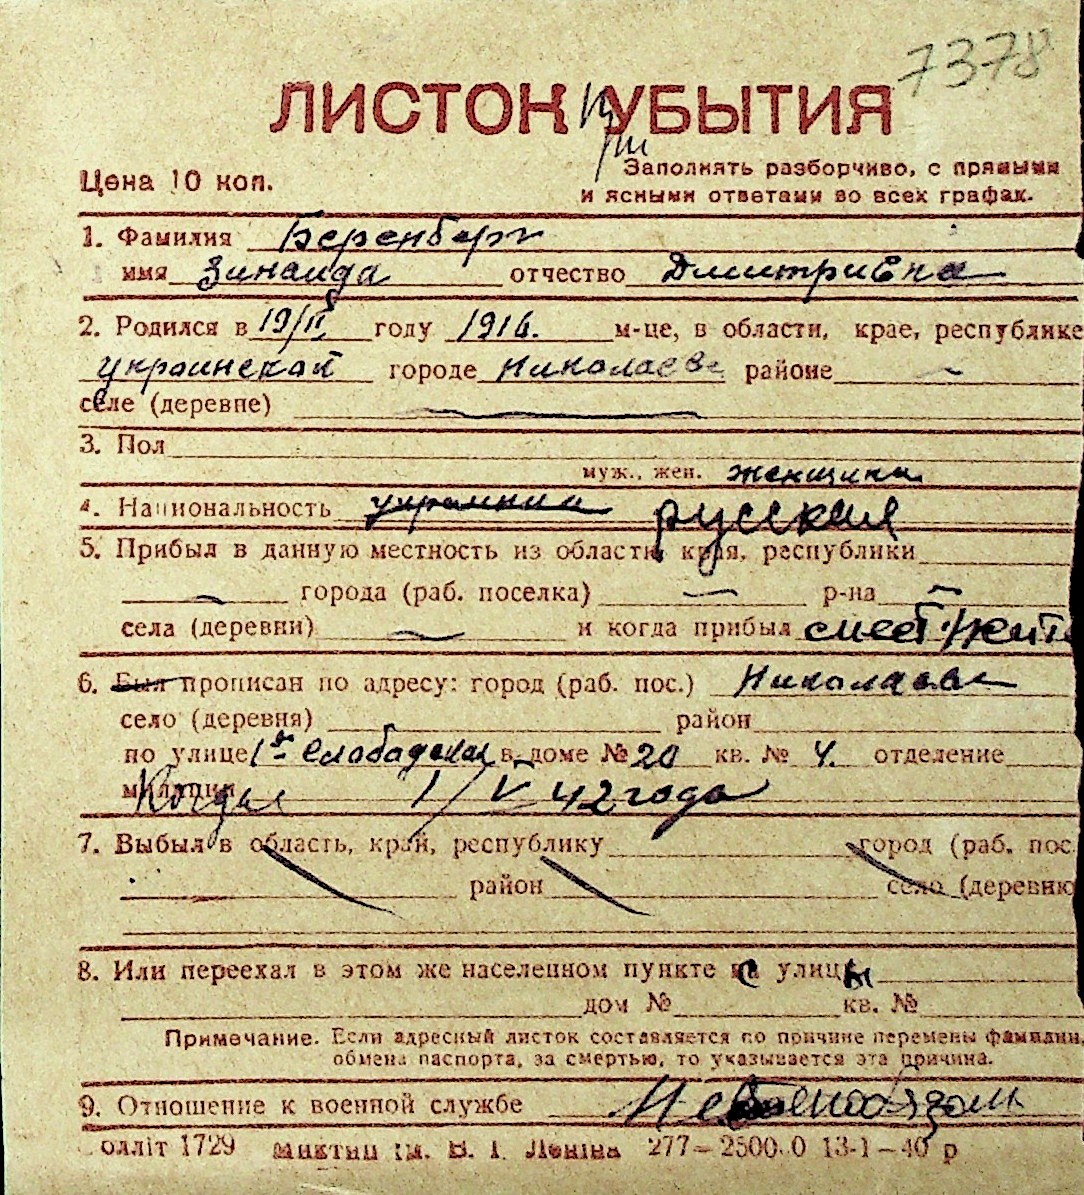 7378
ЛИСТОК при УБЫТИЯ
Цена 10 коп.
Заполнять разборчиво, с прямыми
и ясными ответами во всех графах.
1. Фамилия Беренберг
имя Зинаида отчество Дмитриевна
2. Родился в 19/II году 1916. м-це, в области, крае, республике
украинской городе Николаеве районе —
селе (деревне) —
3. Пол
муж., жен. женщина
4. Национальность украинка русская
5. Прибыл в данную местность из области, края, республики
— города (раб. поселка) — р-на —
села (деревни) — и когда прибыл смест. жит
6. Был прописан по адресу: город (раб. пос.) Николаеве
село (деревня) район
по улице 1ая Слободская в доме № 20 кв. № 4. отделение
милиции Когда 1/V 42 года
7. Выбыл в область, край, республику город (раб. пос.
район село (деревню
8. Или переехал в этом же населенном пункте с улицы
дом № кв. №
Примечание. Если адресный листок составляется по причине перемены фамилии,
обмена паспорта, за смертью, то указывается эта причина.
9. Отношение к военной службе Невоенообязан
олліт 1729 ім. В. І. Леніна 277—2500.0 13-1—40 р